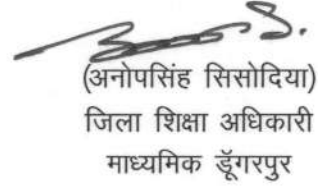 (अनोपसिंह सिसोदिया)
जिला शिक्षा अधिकारी
माध्यमिक डूँगरपुर